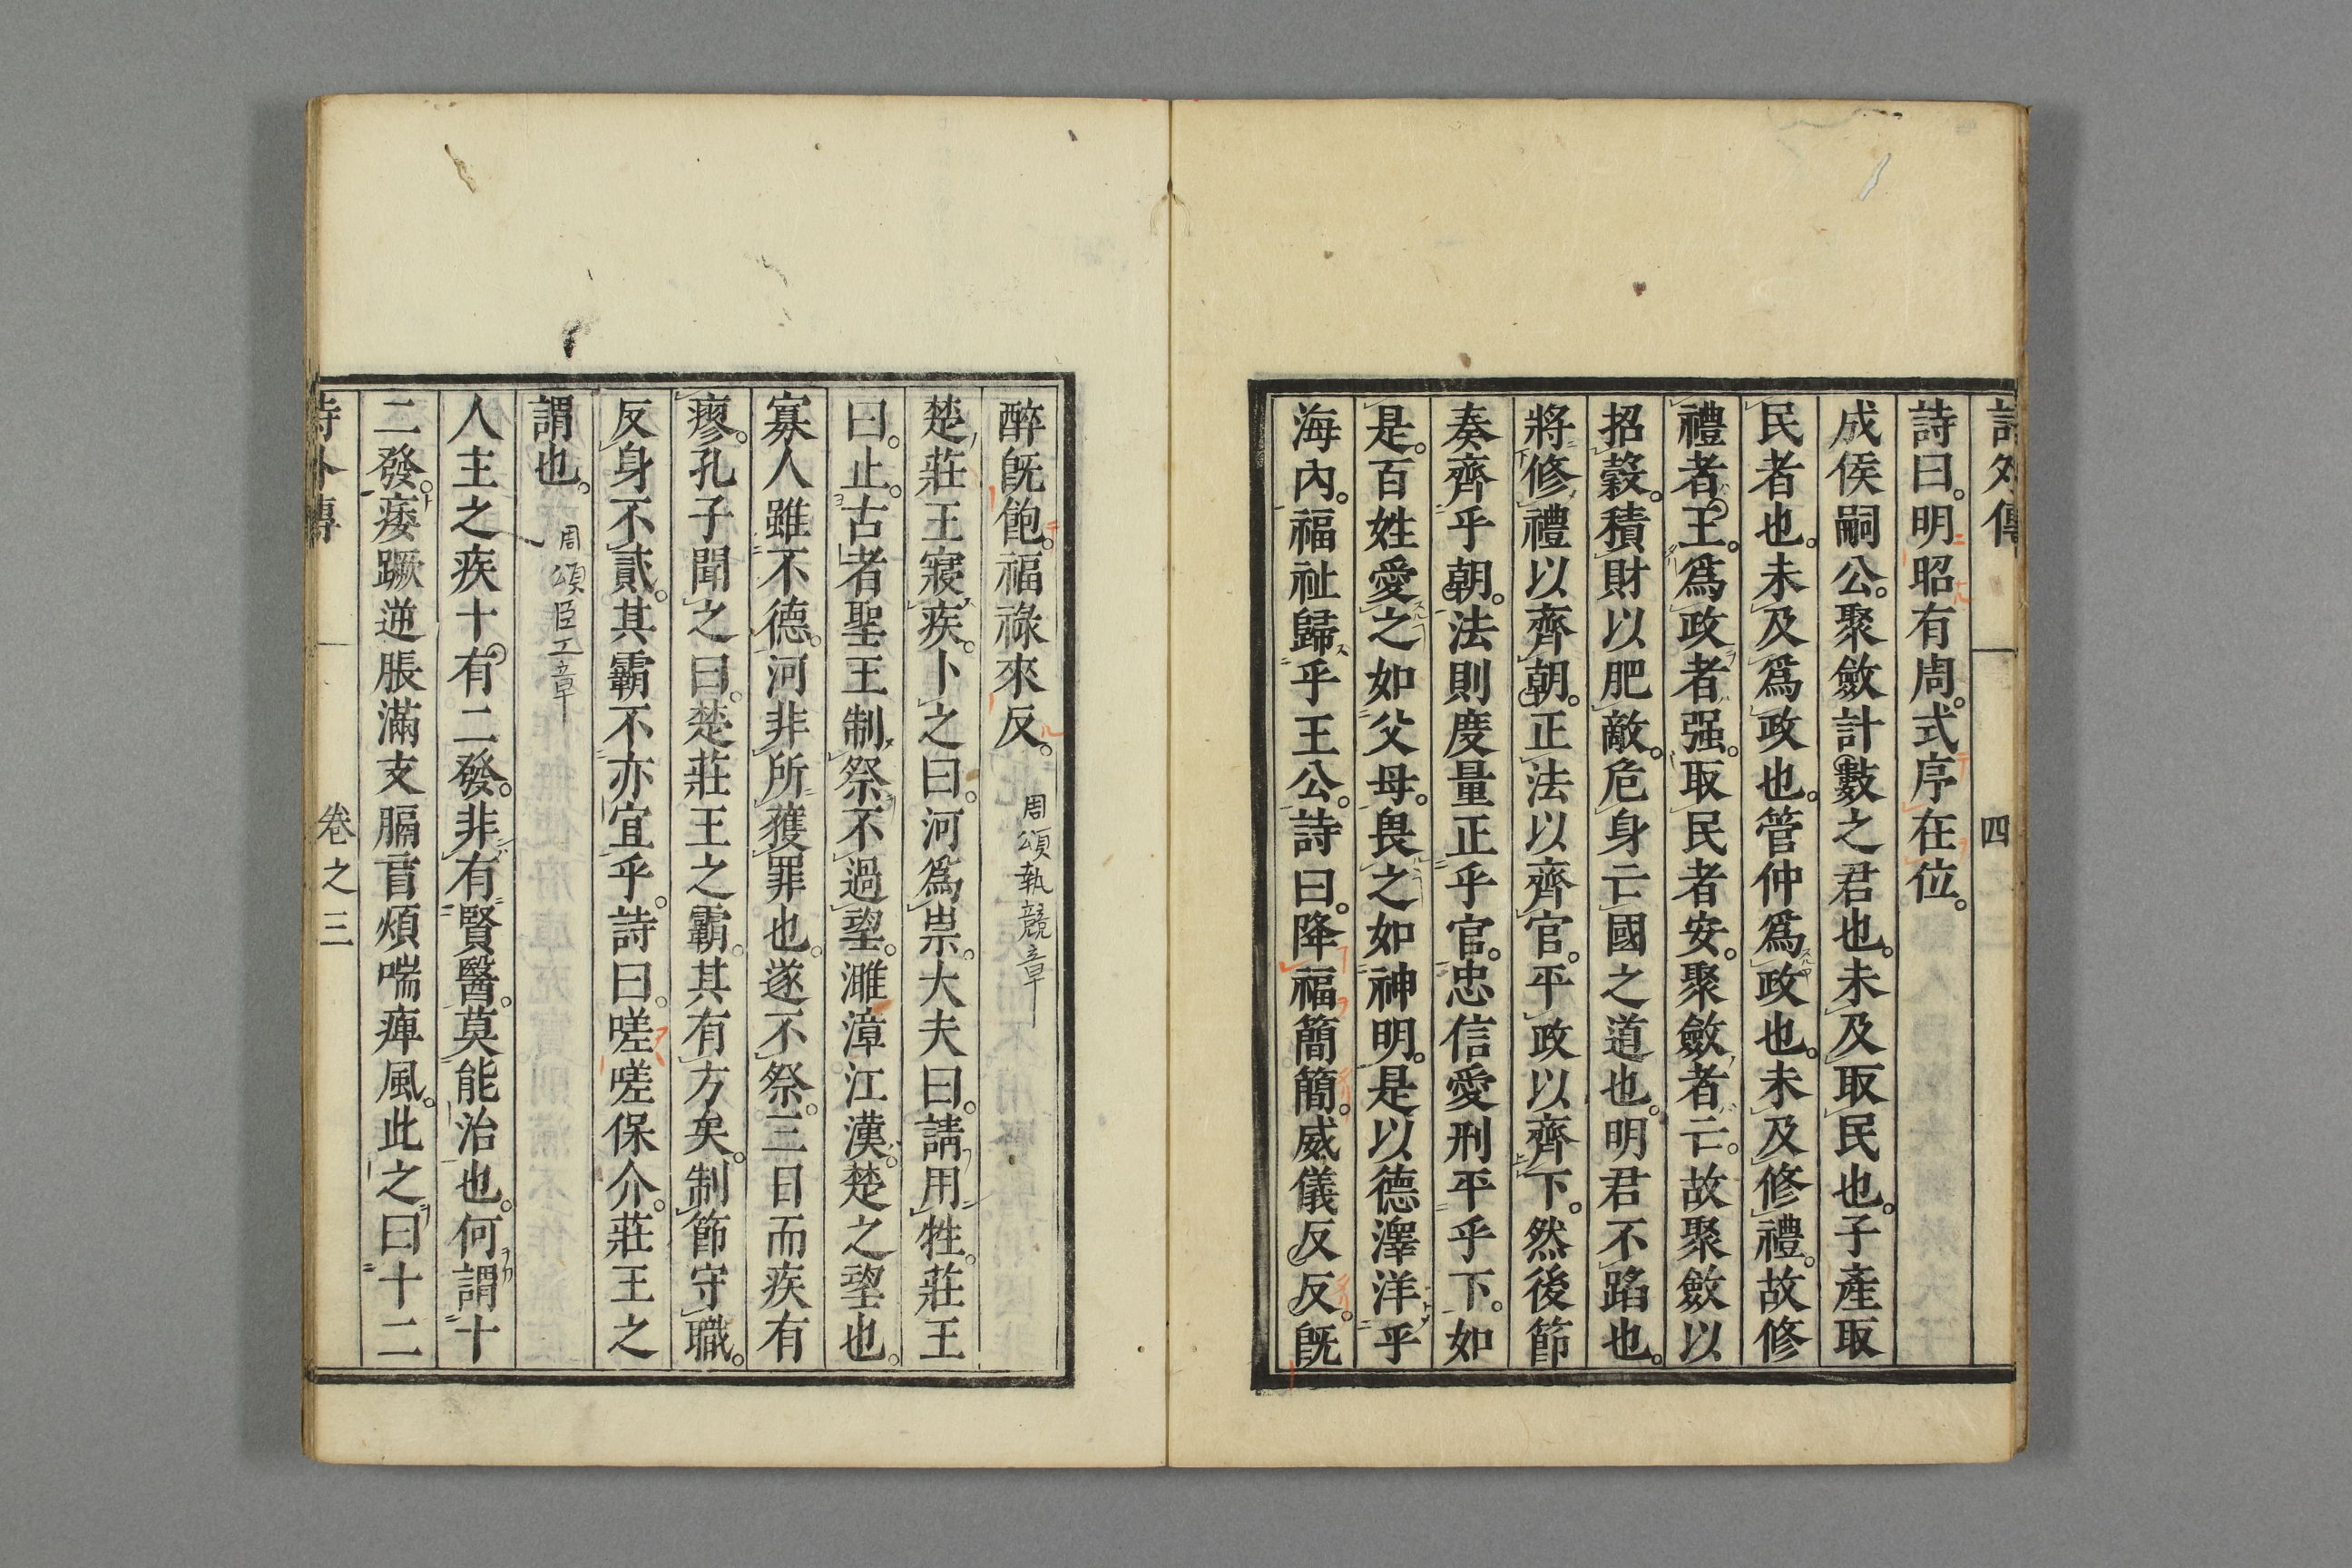 詩外傳 四
詩曰。明昭有周。式序在位。
成侯嗣公。聚斂計數之君也。未及取民也。子產取
民者也。未及爲政也。管仲爲政也。未及修禮。故修
禮者。王。爲政者强。取民者安。聚斂者亡。故聚斂以
招㝅。積財以肥敵。危身亡國之道也。明君不蹈也。
將修禮以齊朝。正法以齊官。平政以齊下。然後節
奏齊乎朝。法則度量正乎官。忠信愛刑平乎下。如
是。百姓愛之如父母。畏之如神明。是以德澤洋乎
海內。福祉歸乎王公。詩曰。降福簡簡。威儀反反。既
醉既飽。福祿來反。周頌執競章
楚莊王寢疾。卜之曰。河爲祟。大夫曰。請用牲。莊王
曰。止。古者聖王制祭不過望。濉漳江漢。楚之望也。
寡人雖不德。河非所獲罪也。遂不祭。三日而疾有
瘳。孔子聞之曰。楚莊王之霸。其有方矣。制節守職。
反身不貳。其霸不亦宜乎。詩曰。嗟嗟保介。莊王之
謂也。周頌臣工章
人主之疾十。有二發。非有賢醫。莫能治也。何謂十
二發。痿蹶逆脹滿支膈盲煩喘痺風。此之曰十二
詩外傳 卷之三